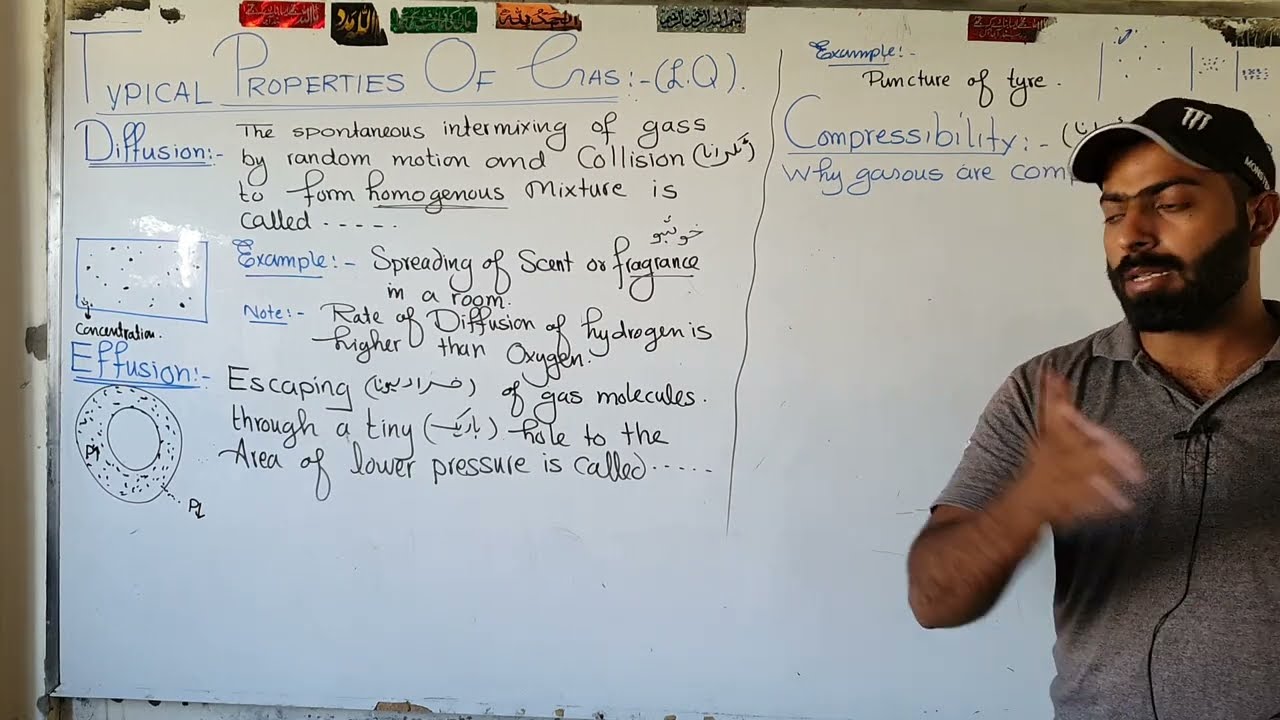 بسم اللہ الرحمن الرحیم
TYPICAL PROPERTIES OF GAS:-(L.Q).
Diffusion:-
The spontaneous intermixing of gass
by random motion and Collision (ٹکرانا)
to form homogenous mixture is
called -----.
خوشبو
Example:- Spreading of Scent or fragrance
in a room.
Note:- Rate of Diffusion of hydrogen is
higher than Oxygen.
Concentration.
Effusion:-
Escaping
of gas molecules.
through a tiny (باریک) hole to the
Area of lower pressure is called.....
P↑
P↓
Example:-
Puncture of tyre.
Compressibility:-
Why gasous are com
MONSTER